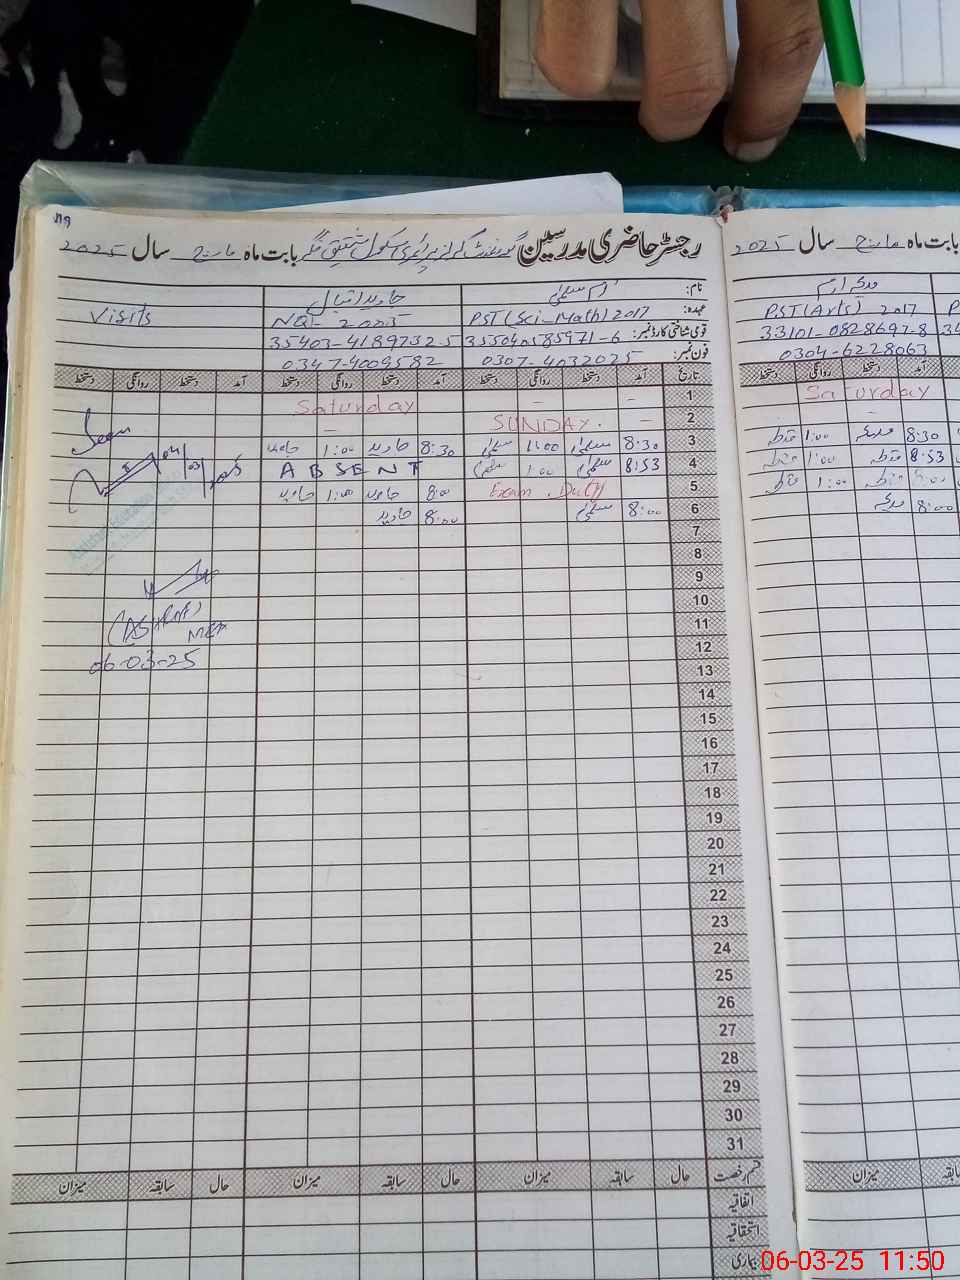 رجسٹر حاضری مدرسین گورنمنٹ گرلز پرائمری سکول شفیق نگر بابت ماہ مارچ سال 2025
نام: ام سلمیٰ جاوید اقبال
عہدہ: PST (Sci-Math) 2017 NQ- Visits
قومی شناختی کارڈ نمبر: 35403-4189732-5
فون نمبر: 0307-4032025 0347-4009582
تاریخ آمد دستخط روانگی دستخط آمد دستخط روانگی دستخط آمد دستخط روانگی دستخط
1 - - Saturday
2 - SUNDAY. -
3 8:30 سلمیٰ 1:00 سلمیٰ 8:30 جاوید 1:00 جاوید
4 8:53 سلمیٰ 1:00 سلمیٰ ABSENT
5 Exam. Duty 8:00 جاوید 1:00 جاوید
6 8:00 سلمیٰ 8:00 جاوید
7
8
9
10
11
12
13
14
15
16
17
18
19
20
21
22
23
24
25
26
27
28
29
30
31
Seen
04/03/25
MEA
06-03-25
قسم رخصت حال سابقہ میزان حال سابقہ میزان حال سابقہ میزان
اتفاقیہ
استحقاقیہ
بیماری
بابت ماہ مارچ سال 2025
PST (Arts) 2017
33101-0828697-8
0304-6228063
دستخط روانگی دستخط آمد
Saturday
8:30 1:00
8:53 1:00
8:00 1:00
8:00
سابقہ میزان
06-03-25 11:50